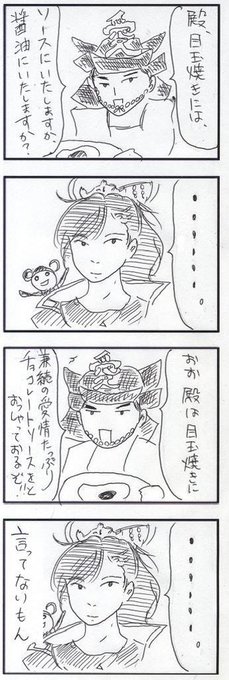 殿、目玉焼きには、
ソースにいたしますか、
醤油にいたしますか？
愛
・・・・・・・・。
おお 殿は目玉焼きに
兼続の愛情たっぷり
チョコレートソースをと
おっしゃておるぞ！
愛
・・・・・・・・。
言ってないもん